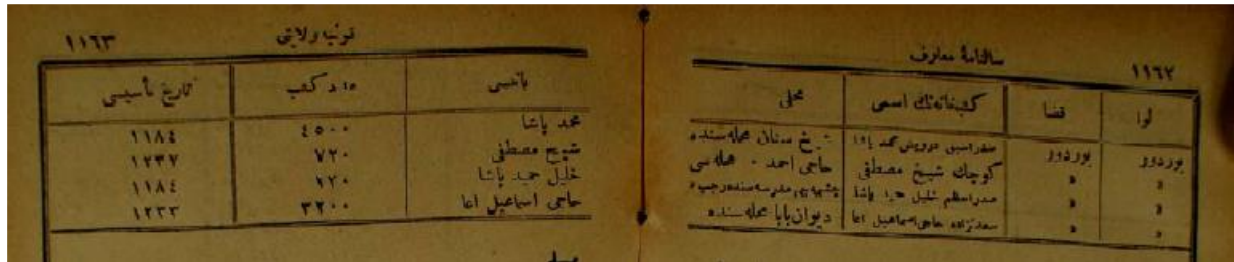 ١١٦٢
سالنامهٔ معارف
لوا
قضا
كتبخانه‌نك اسمى
محلى
بوردور بوردور صدر اسبق درويش محمد پاشا شيخ سنان محله‌سنده
» » كوچك شيخ مصطفى حاجى احمد » محله‌سى
» » صدراعظم خليل حميد پاشا مدرسه‌سنده
» » سعدزاده حاجى اسماعيل اغا ديوان بابا محله‌سنده
١١٦٣
قونيه ولايتى
بانيسى
عدد كتب
تاريخ تأسيسى
محمد پاشا ٤٥٠٠ ١١٨٤
شيخ مصطفى ٧٢٠ ١٢٣٧
خليل حميد پاشا ٦٢٠ ١١٨٤
حاجى اسماعيل اغا ٣٢٠٠ ١٢٣٣